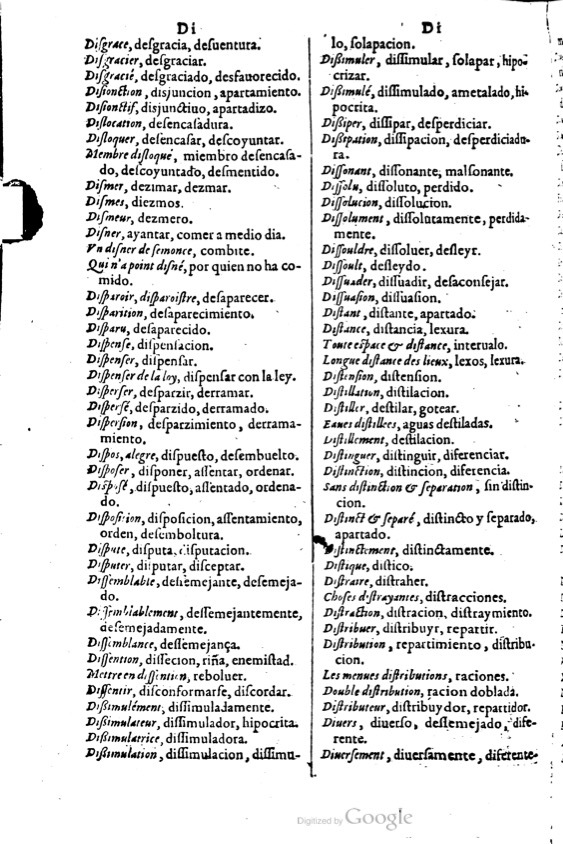 Di
Diſgrace, deſgracia, deſuentura.
Diſgracier, deſgraciar.
Diſgracié, deſgraciado, desfauorecido.
Diſionction, disjuncion, apartamiento.
Diſionctif, disjunctiuo, apartadizo.
Diſlocation, deſencaſadura.
Diſloquer, deſencaſar, deſcoyuntar.
Membre diſloqué, miembro deſencaſa-
do, deſcoyuntado, deſmentido.
Diſmer, dezimar, dezmar.
Diſmes, diezmos.
Diſmeur, dezmero.
Diſner, ayantar, comer a medio dia.
Vn diſner de ſemonce, combite.
Qui n'a point diſné, por quien no ha co-
mido.
Diſparoir, diſparoiſtre, deſaparecer.
Diſparition, deſaparecimiento.
Diſparu, deſaparecido.
Diſpenſe, diſpenſacion.
Diſpenſer, diſpenſar.
Diſpenſer de la loy, diſpenſar con la ley.
Diſperſer, deſparzir, derramar.
Diſperſé, deſparzido, derramado.
Diſperſion, deſparzimiento, derrama-
miento.
Diſpos, alegre, diſpueſto, deſembuelto.
Diſpoſer, diſponer, aſſentar, ordenar.
Diſpoſé, diſpueſto, aſſentado, ordena-
do.
Diſpoſition, diſpoſicion, aſſentamiento,
orden, deſemboltura.
Diſpute, diſputa, diſputacion.
Diſputer, diſputar, diſceptar.
Diſſemblable, deſſemejante, deſemeja-
do.
Diſſemblablement, deſſemejantemente,
deſemejadamente.
Diſſemblance, deſſemejança.
Diſſention, diſſecion, riña, enemiſtad.
Mettre en diſſention, reboluer.
Diſſentir, diſconformarſe, diſcordar.
Diſſimulément, diſſimuladamente.
Dißimulateur, diſſimulador, hipocrita.
Dißimulatrice, diſſimuladora.
Dißimulation, diſſimulacion, diſſimu-
Di
lo, ſolapacion.
Dißimuler, diſſimular, ſolapar, hipo-
crizar.
Dißimulé, diſſimulado, ametalado, hi-
pocrita.
Dißiper, diſſipar, deſperdiciar.
Dißipation, diſſipacion, deſperdiciadu-
ra.
Diſſonant, diſſonante, malſonante.
Diſſolu, diſſoluto, perdido.
Diſſolucion, diſſolucion.
Diſſolument, diſſolutamente, perdida-
mente.
Diſſouldre, diſſoluer, deſleyr.
Diſſoult, deſleydo.
Diſſuader, diſſuadir, deſaconſejar.
Diſſuaſion, diſſuaſion.
Diſtant, diſtante, apartado.
Diſtance, diſtancia, lexura.
Toute eſpace & diſtance, interualo.
Longue diſtance des lieux, lexos, lexura.
Diſtenſion, diſtenſion.
Diſtillation, diſtilacion.
Diſtiller, deſtilar, gotear.
Eaues diſtillees, aguas deſtiladas.
Diſtillement, deſtilacion.
Diſtinguer, diſtinguir, diferenciar.
Diſtinction, diſtincion, diferencia.
Sans diſtinction & ſeparation, ſin diſtin-
cion.
Diſtinct & ſeparé, diſtincto y ſeparado,
apartado.
Diſtinctement, diſtinctamente.
Diſtique, diſtico.
Diſtraire, diſtraher.
Choſes diſtrayantes, diſtracciones.
Diſtraction, diſtracion, diſtraymiento.
Diſtribuer, diſtribuyr, repartir.
Diſtribution, repartimiento, diſtribu-
cion.
Les menues diſtributions, raciones.
Double diſtribution, racion doblada.
Diſtributeur, diſtribuydor, repartidor.
Diuers, diuerſo, deſſemejado, dife-
rente.
Diuerſement, diuerſamente, diferente-
Digitized by Google